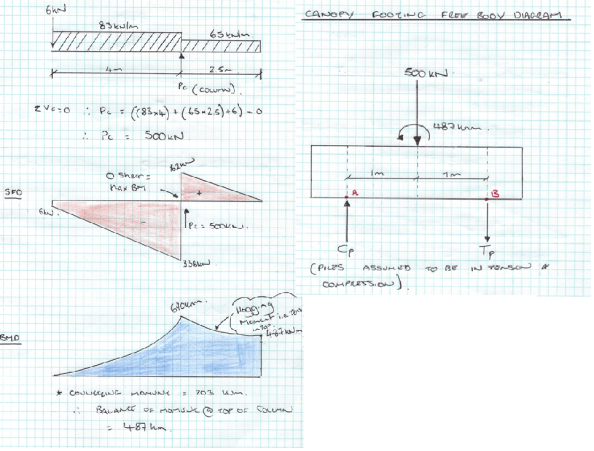 6kN
83kN/m
65kN/m
4m
2.5m
Pc (COLUMN)
ΣVc=0 ∴ Pc = ((83x4)+(65x2.5)+6) = 0
∴ Pc = 500kN
SFD
0 shear =
Max BM
162kN
+
-
6kN
Pc = 500kN
338kN
BMD
690kNm
Hogging
Moment i.e.
in top
487kNm
* COUNTERING MOMENT = 203 kNm
∴ BALANCE OF MOMENT @ TOP OF COLUMN
= 487kNm
CANOPY FOOTING FREE BODY DIAGRAM
500kN
487kNm
1m
1m
A
B
Cp
Tp
(PILES ASSUMED TO BE IN TENSION &
COMPRESSION).